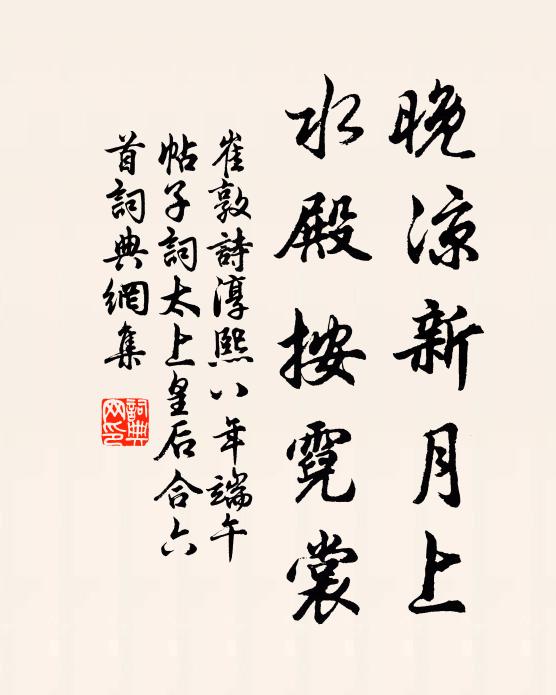 晚凉新月上
水殿按霓裳
崔敦詩淳熙八年端午
帖子詞太上皇后合六
首詞典網集
詞典
网印